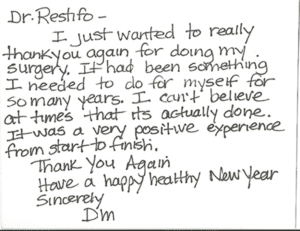 Dr. Restifo -
I just wanted to really
thank you again for doing my
surgery. It had been something
I needed to do for myself for
so many years. I can't believe
at times that its actually done.
It was a very positive experience
from start to finish.
Thank You Again
Have a happy healthy New Year
Sincerely
DM